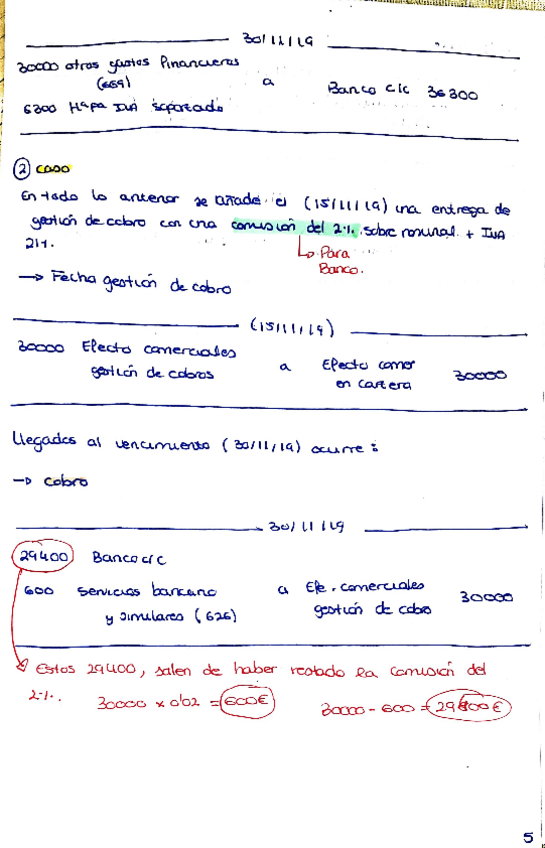 30/11/19
30000 otros gastos Financieros
(669) a Banco c/c 36300
6300 Hª Pª IVA soportado
② caso
En todo lo anterior se añade el (15/11/19) una entrega de
gestión de cobro con una comisión del 2%. sobre nominal + IVA
21%.
↳ Para
Banco.
→ Fecha gestión de cobro
(15/11/19)
30000 Efecto comerciales a Efecto comer 30000
gestión de cobros en cartera
Llegados al vencimiento (30/11/19) ocurre:
→ Cobro
30/11/19
29400 Banco c/c
600 Servicios bancario a Efe. comerciales 30000
y similares (626) gestión de cobro
Estos 29400, salen de haber restado la comisión del
2%. 30000 x 0'02 = 600€ 30000 - 600 = 29400€
5